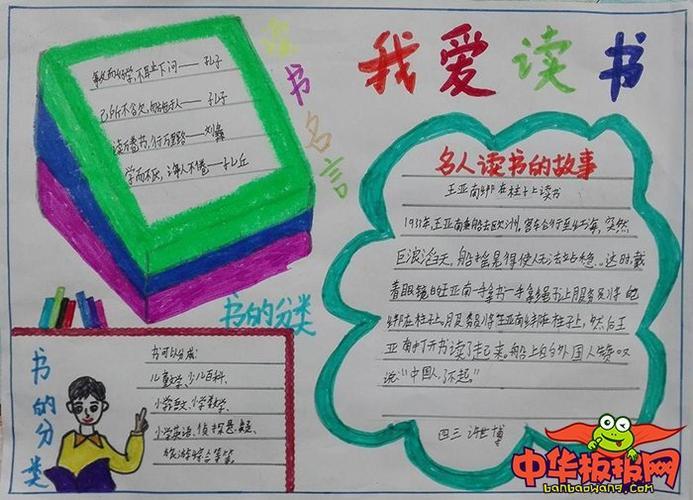 我爱读书
读书名言
敏而好学,不耻下问——孔子
己所不欲,勿施于人——孔子
读万卷书,行万里路——刘彝
学而不厌,诲人不倦——孔丘
书的分类
名人读书的故事
王亚南绑在柱子上读书
1933年,王亚南乘船去欧洲。客车行至红海,突然
巨浪滔天,船摇晃得使人无法站稳。这时,戴
着眼镜的王亚南一手拿书一手拿绳
绑在柱子上。服务员将王亚南绑在柱子上,然后王
亚南打开书读了起来。船上的外国人赞叹
说:“中国人,了不起。”
四三 许世博
书的分类
书可以分成:
儿童文学、少儿百科、
小学语文、小学数学、
小学英语、侦探悬疑、
旅游综合等等
中华板报网
banbaowang.com